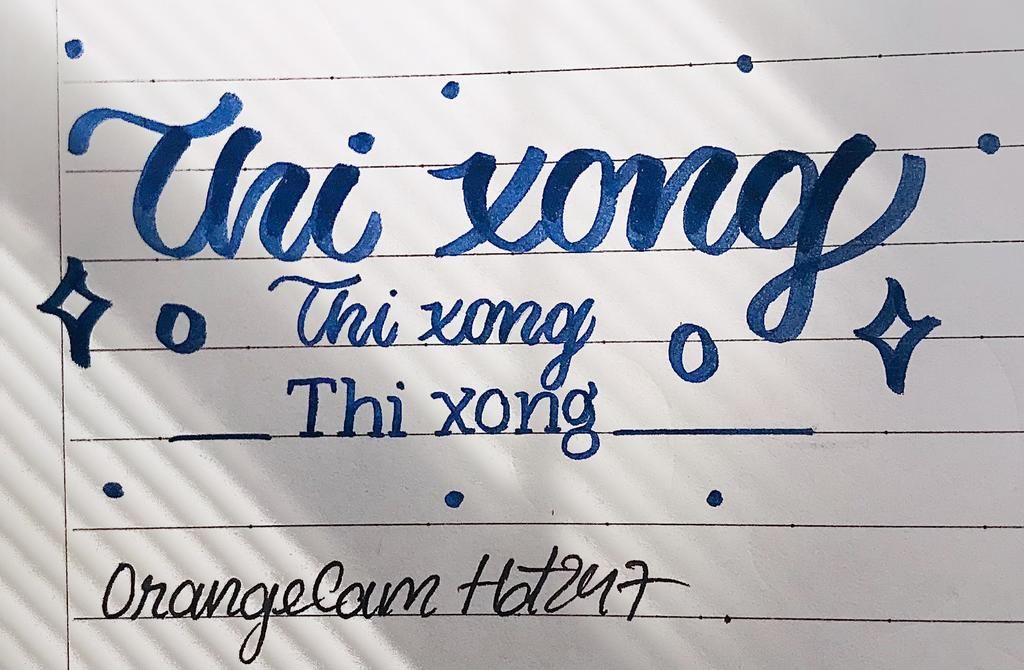 Thi xong
Thi xong
Thi xong
OrangeCam Hot247